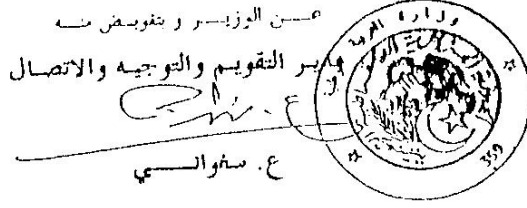 عـــن الوزيـــر و بتفويـــض منـــه
مدير التقويم والتوجيه والاتصـال
ع. سفوالـــــي
وزارة التربية
359